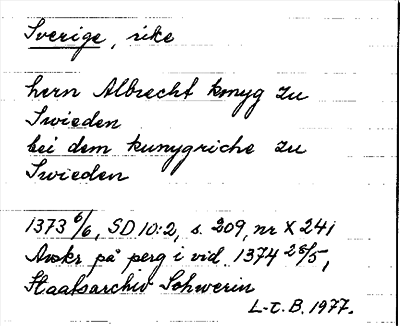 Sverige, rike
hern Albrecht konyg zu
Swieden
bei dem kunygriche zu
Swieden
1373 6/6, SD 10:2, s. 209, nr X 241
Avskr på perg i vid. 1374 25/5,
Staatsarchiv Schwerin
L-t. B. 1977.